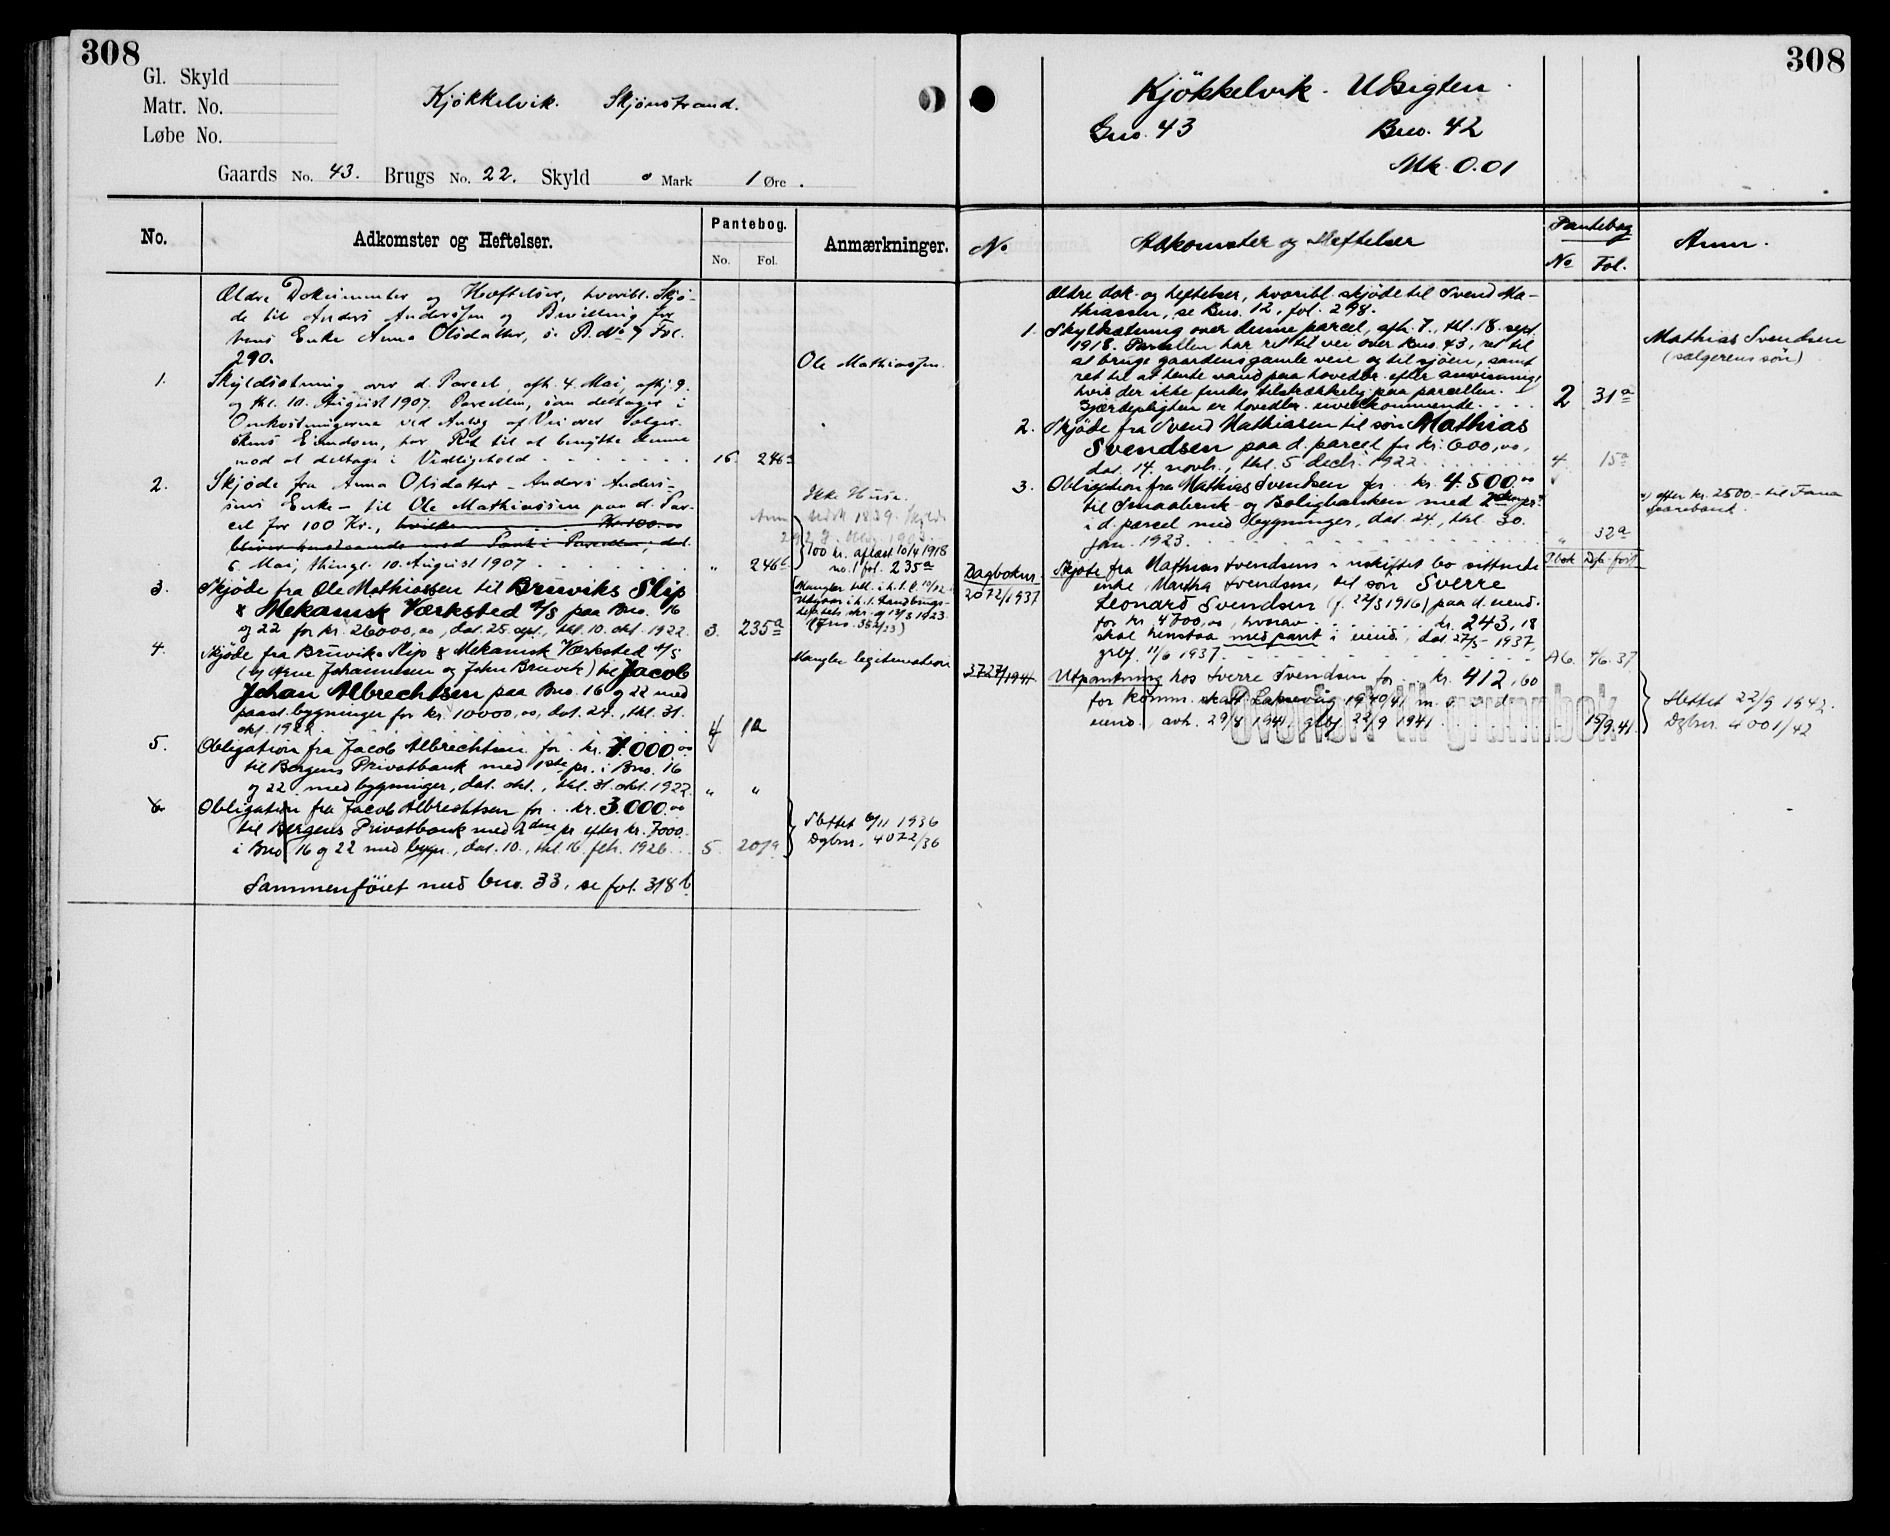 308
Gl. Skyld
Matr. No.
Løbe No.
Kjøkkelvik. Skjønstrand.
Gaards No. 43. Brugs No. 22. Skyld 0 Mark 1 Øre.
No.
Adkomster og Heftelser.
Pantebog.
No. Fol.
Anmærkninger.
Ældre Dokumenter og Hæftelser, hvoribl. Skjø-
de til Anders Anderssen og Bevilling for
hans Enke Anna Olsdatter, se B. No 9 Fol.
290.
Ole Mathiassen.
1. Skyldsætning over d. Parcel, afh. 4. Mai, afhj. 9.
og thl. 10. August 1907. Parcellen, som deltager i
Omkostningerne ved Anlæg af Vei over Sælger-
skens Eiendom, har Ret til at benytte denne
mod at deltage i Vedligehold 16 246a
2. Skjøde fra Anna Olsdatter - Anders Anders-
sens Enke - til Ole Mathiassen paa d. Par-
cel for 100 Kr., hvilke Kr. 100.00
bliver henstaaende med Pant i Parcellen; dat.
6. Mai, thingl. 10. August 1907 " 246b
Ikke Huse.
100 kr. aflæst 10/4 1918
no. 1 fol. 235a
3. Skjøde fra Ole Mathiassen til Bruviks Slip
& Mekanisk Værksted A/S paa Bno. 16
og 22 for kr. 26000,00, dat. 25. sept., thl. 10. okt. 1922. 3. 235a
4. Skjøde fra Bruviks Slip & Mekanisk Værksted A/S
(v/ Arne Johannesen og John Bruvik) til Jacob
Johan Albrechtsen paa Bno. 16 og 22 med
paast. bygninger for kr. 10000,00, dat. 24., thl. 31.
okt. 1922 4 1a
Mangler legitimation
5. Obligation fra Jacob Albrechtsen for kr. 7000.00
til Bergens Privatbank med 1ste pr. i Bno. 16
og 22 med bygninger, dat. okt., thl. 31. okt. 1922. " "
6. Obligation fra Jacob Albrechtsen for kr. 3000.00
til Bergens Privatbank med 2den pr. efter kr. 7000.-
i Bno 16 og 22 med bygn., dat. 10., thl. 16. feb. 1926 5. 207a
Slettet 6/11 1936
Dgbnr. 4072/36
Sammenføiet med bno. 33, se fol. 318b
308
Kjøkkelvik. Udsigten.
Gno. 43 Bno. 42
Mk. 0.01
No
Adkomster og Heftelser
Pantebog
No Fol.
Anm.
Ældre dok. og heftelser, hvoribl. skjøde til Svend Ma-
thiassen, se Bno. 12, fol. 298.
1. Skyldsætning over denne parcel, afh. 7., thl. 18. sept.
1918. Parcellen har ret til vei over Bno. 43, ret til
at bruge gaardens gamle veie og til sjøen, samt
ret til at hente vand paa hovedbr. efter anvisning,
hvis der ikke findes tilstrækkelig paa parcellen.
Gjærdepligten er hovedbr. uvedkommende 2 31a
Mathias Svendsen
(sælgerens søn)
2. Skjøde fra Svend Mathiasen til søn Mathias
Svendsen paa d. parcel for kr. 600,00,
dat. 14. novbr., thl. 5 decbr. 1922 4. 15a
3. Obligation fra Mathias Svendsen for kr. 4.500.00
til Smaabruk og Boligbanken med 2den pr.
i d. parcel med bygninger, dat. 24., thl. 30.
jan. 1923. " 52a
x) efter kr. 2500.- til Fana
sparebank.
Dagboknr.
2072/1937
Skjøte fra Mathias Svendsens i uskiftet bo sittende
enke, Martha Svendsen, til søn Sverre
Leonard Svendsen (f. 22/3 1916) paa d. eiend.
for kr. 4700,00, hvorav kr. 243,18
skal henstaa med pant i eiend., dat. 27/5 - 1937,
grbf. 11/6 1937. A6. 4/6.37
3727/1941
Utpantning hos Sverre Svendsen for kr. 412,60
for komm. skatt Laksevåg 1940/41 m. o. i d.
eiend., avh. 29/8 1941, glbf. 22/9 1941 15/9.41.
Slettet 22/9 1942.
Dgbnr. 4001/42
Overført til grunnbok